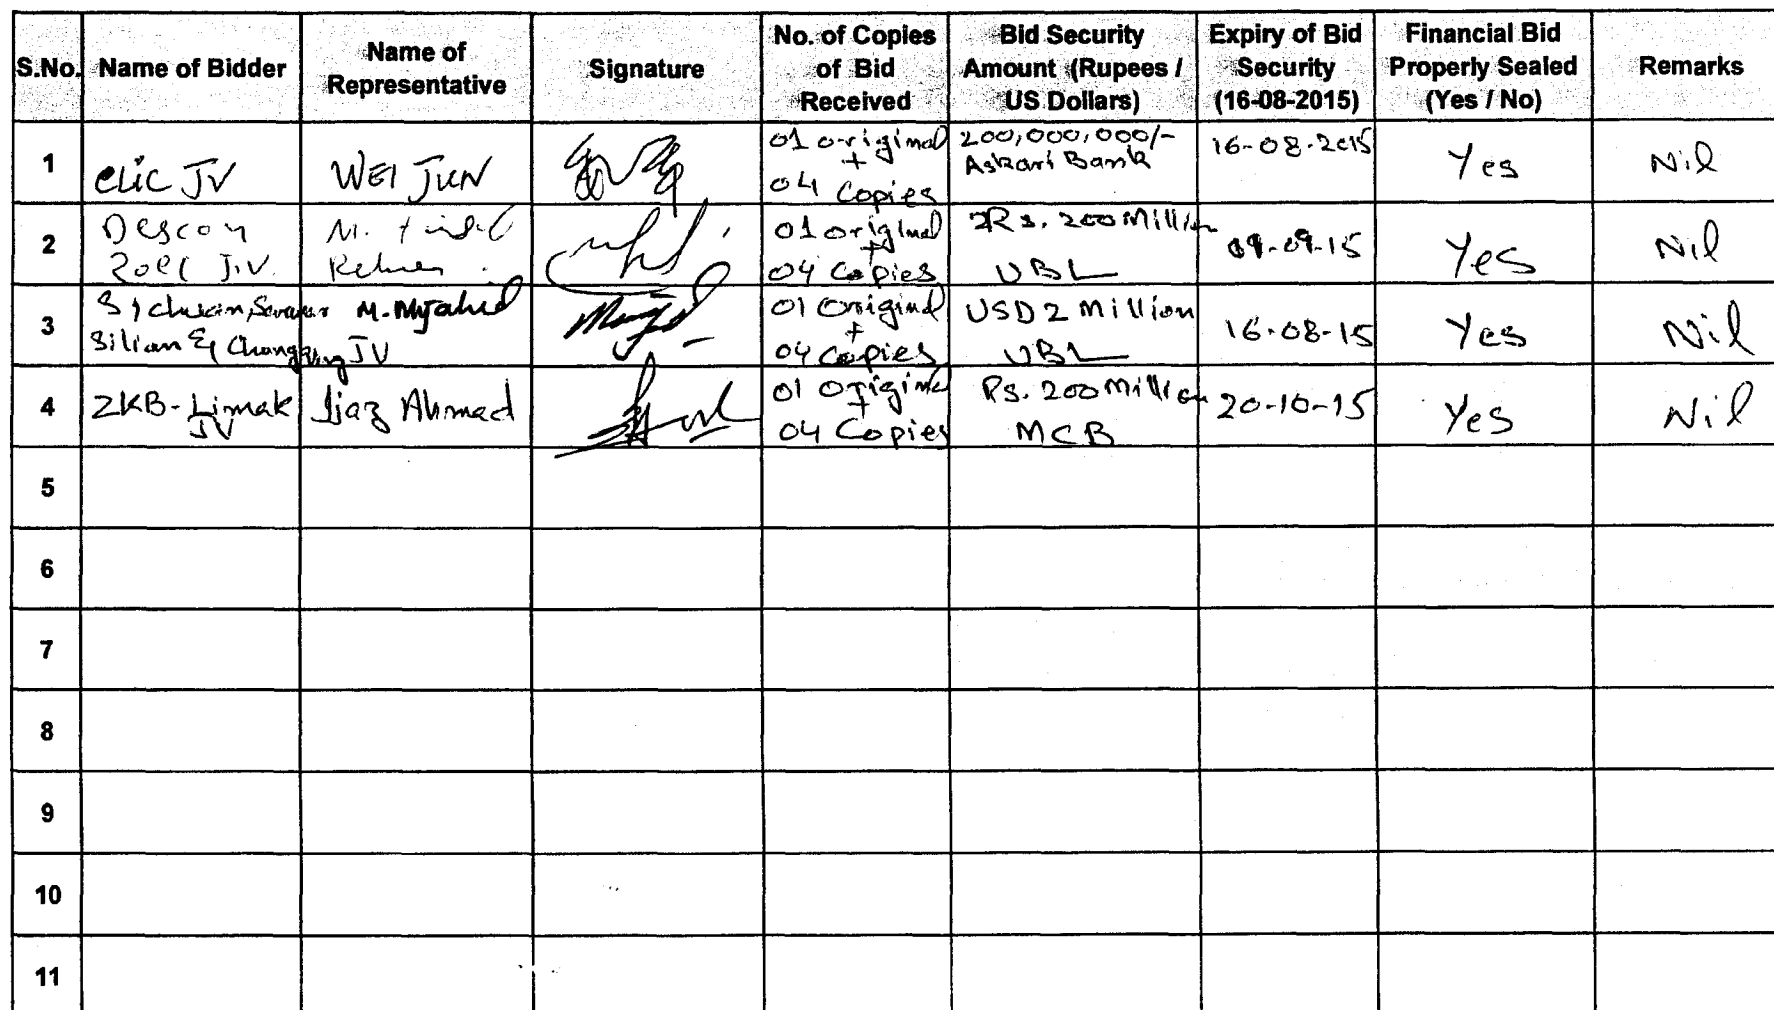 S.No. Name of Bidder Name of Representative Signature No. of Copies of Bid Received Bid Security Amount (Rupees / US Dollars) Expiry of Bid Security (16-08-2015) Financial Bid Properly Sealed (Yes / No) Remarks
1 CLIC JV WEI JUN 01 original + 04 Copies 200,000,000/- Askari Bank 16-08-2015 Yes Nil
2 Descon JV. M. 01 original + 04 Copies Rs. 200 Million UBL 09-09-15 Yes Nil
3 JV M. Mujahid 01 Original + 04 Copies USD 2 Million UBL 16-08-15 Yes Nil
4 ZKB-Limak JV Ijaz Ahmad 01 Original + 04 Copies Rs. 200 Million MCB 20-10-15 Yes Nil
5
6
7
8
9
10
11